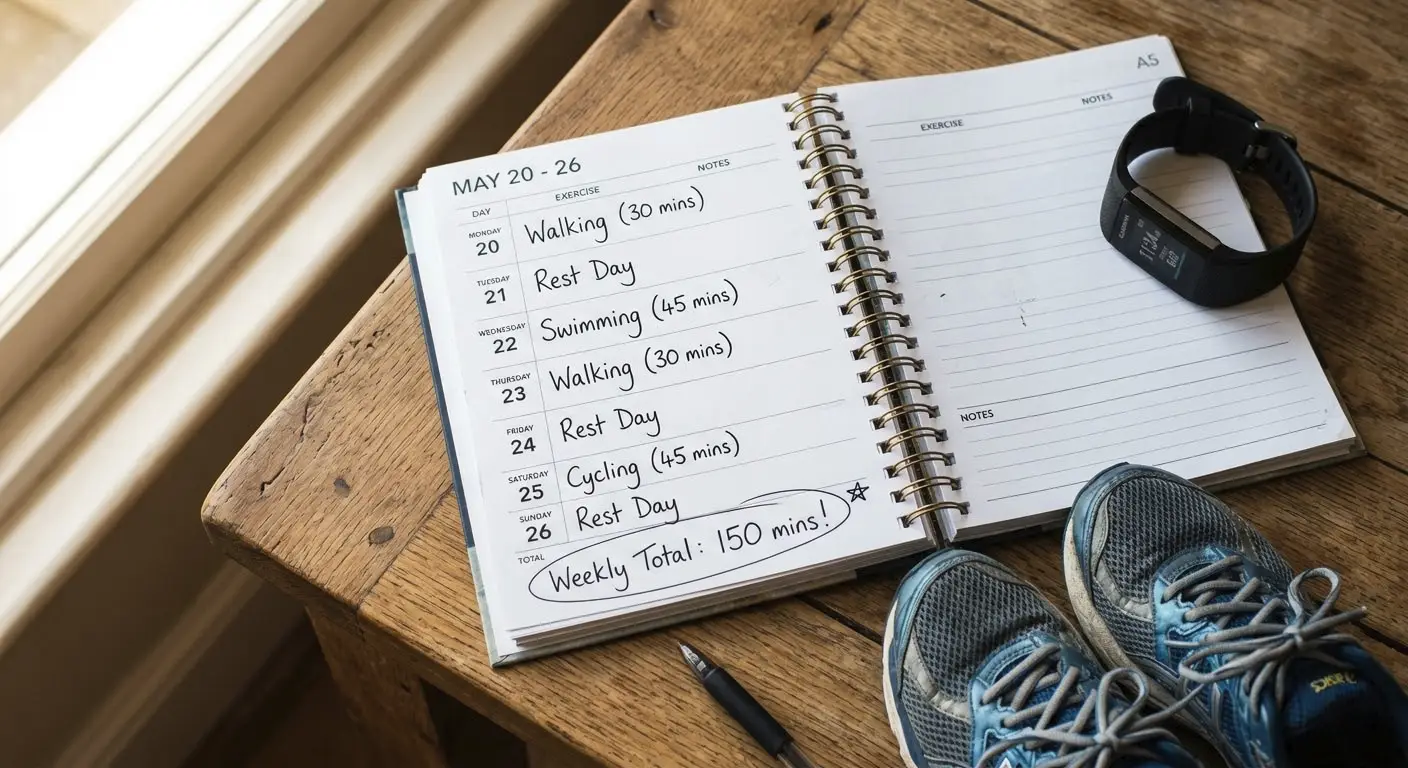 MAY 20 - 26
DAY EXERCISE NOTES
MONDAY 20 Walking (30 mins)
TUESDAY 21 Rest Day
WEDNESDAY 22 Swimming (45 mins)
THURSDAY 23 Walking (30 mins)
FRIDAY 24 Rest Day
SATURDAY 25 Cycling (45 mins)
SUNDAY 26 Rest Day
TOTAL Weekly Total: 150 mins!
A5
EXERCISE NOTES
NOTES
GARMIN
asics